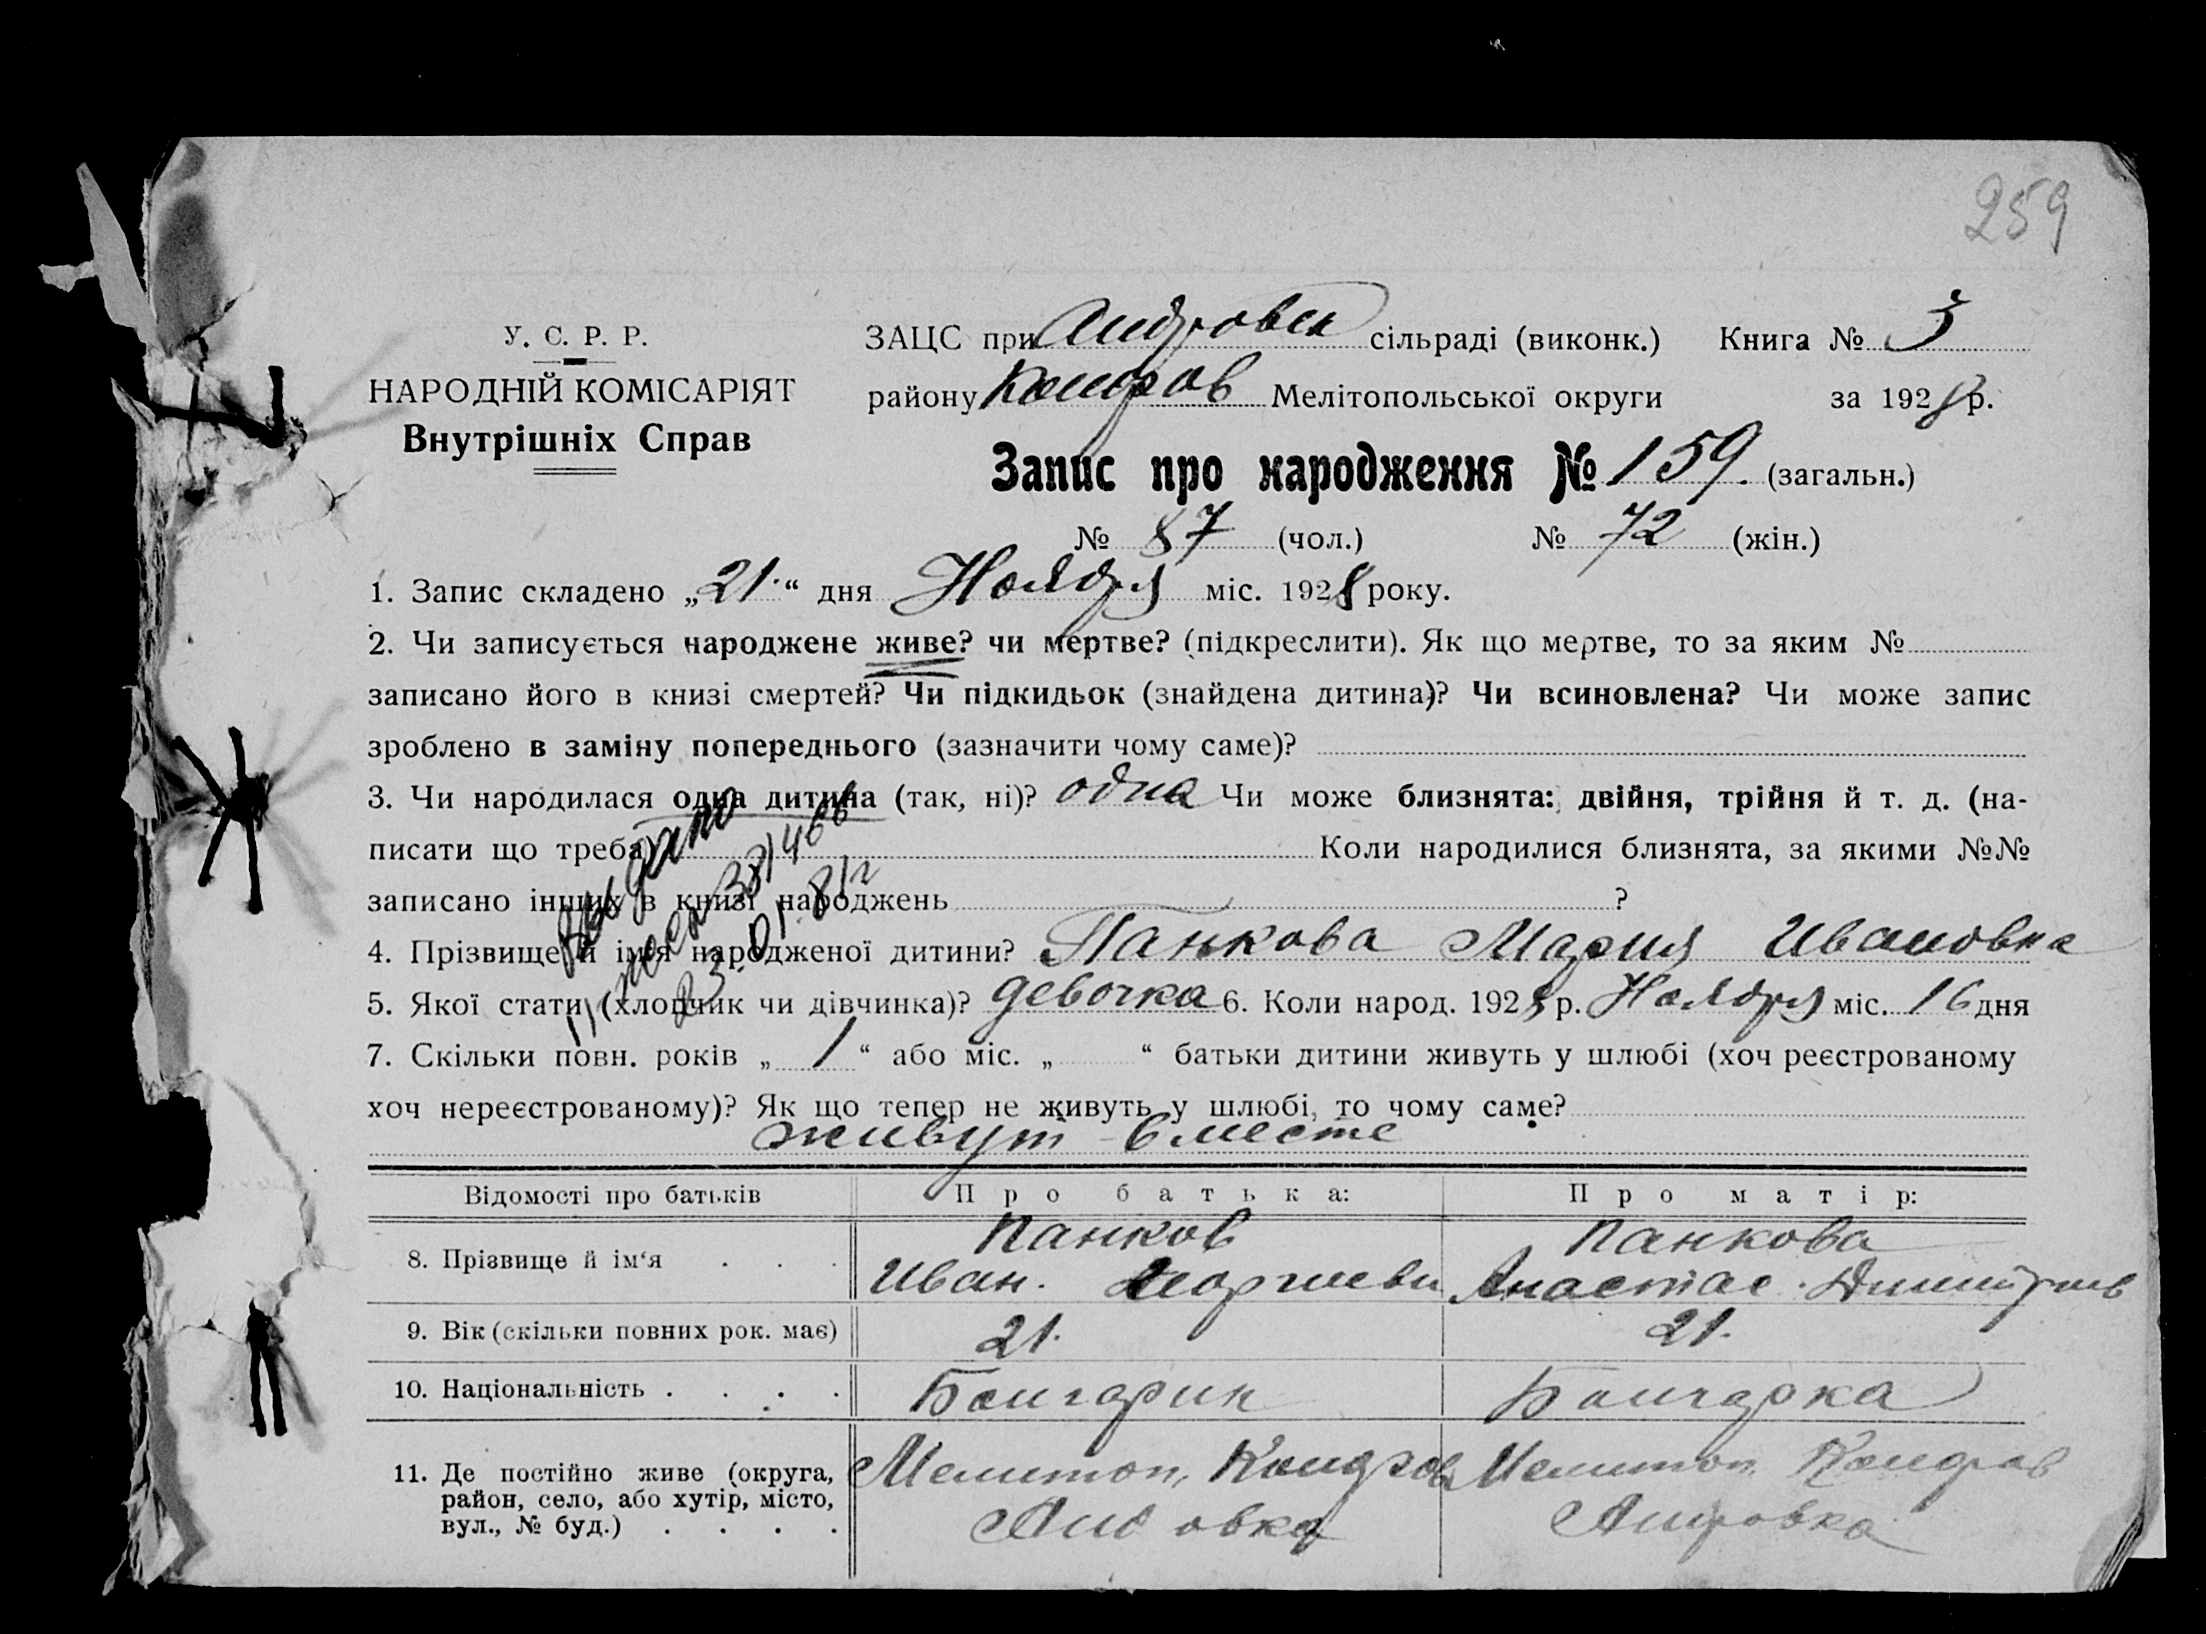 259
У. С. Р. Р.
НАРОДНІЙ КОМІСАРІЯТ
Внутрішніх Справ
ЗАЦС при Андровск сільраді (виконк.) Книга № 3
району Коларов Мелітопольської округи за 1928 р.
Запис про народження № 159. (загальн.)
№ 87 (чол.) № 72 (жін.)
1. Запис складено „21.“ дня Ноября міс. 1928 року.
2. Чи записується народжене живе? чи мертве? (підкреслити). Як що мертве, то за яким №
записано його в книзі смертей? Чи підкидьок (знайдена дитина)? Чи всиновлена? Чи може запис
зроблено в заміну попереднього (зазначити чому саме)?
3. Чи народилася одна дитина (так, ні)? одна Чи може близнята: двійня, трійня й т. д. (на-
писати що треба) Коли народилися близнята, за якими №№
записано інших в книзі народжень ?
4. Прізвище й ім'я народженої дитини? Панкова Мария Ивановна
5. Якої стати (хлопчик чи дівчинка)? девочка 6. Коли народ. 1928 р. Ноября міс. 16 дня
7. Скільки повн. років „ 1 “ або міс. „ “ батьки дитини живуть у шлюбі (хоч реєстрованому
хоч нереєстрованому)? Як що тепер не живуть у шлюбі, то чому саме?
живут вместе
Выдано
23.01.81г
Відомості про батьків Про батька: Про матір:
8. Прізвище й ім‘я . . . Панков Панкова
Иван. Георгиеви Анастас. Димитриев
9. Вік (скільки повних рок. має) 21. 21.
10. Національність . . . . Болгарин Болгарка
11. Де постійно живе (округа, Мелитоп, Коларов Мелитоп. Коларов
район, село, або хутір, місто, Андровка Андровка
вул., № буд.) . . . .